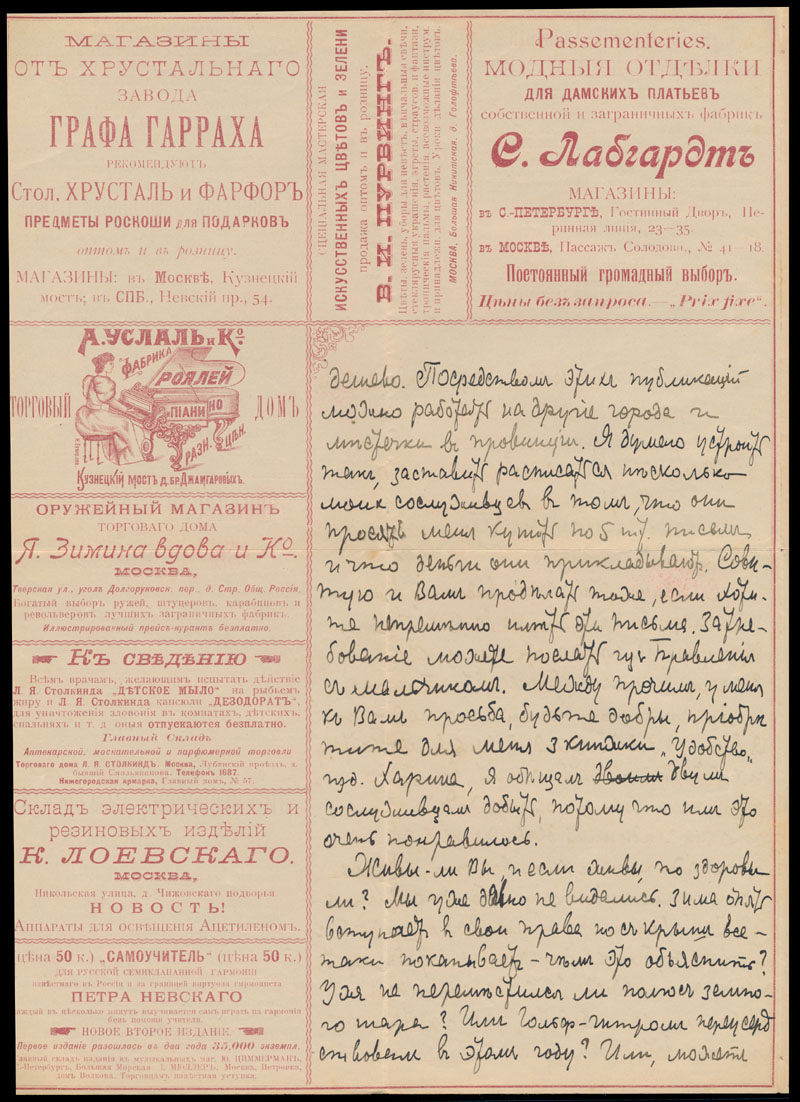 МАГАЗИНЫ
ОТЪ ХРУСТАЛЬНАГО
ЗАВОДА
ГРАФА ГАРРАХА
РЕКОМЕНДУЮТЪ
Стол. ХРУСТАЛЬ и ФАРФОРЪ
ПРЕДМЕТЫ РОСКОШИ для ПОДАРКОВЪ
оптомъ и въ розницу.
МАГАЗИНЫ: въ Москвѣ, Кузнецкій
мостъ; въ СПБ., Невскій пр., 54.
СПЕЦІАЛЬНАЯ МАСТЕРСКАЯ
ИСКУССТВЕННЫХЪ ЦВѢТОВЪ И ЗЕЛЕНИ
продажа оптомъ и въ розницу.
В. И. ПУРВИНГЪ.
Цвѣты, зелень, уборы для невѣстъ, вѣнчальныя свѣчи,
стеклярусныя украшенія, эгреты, страусов. и фантази,
тропическія пальмы, растенія, всевозможные инструм.
и принадлежн. для цвѣтовъ. Уроки дѣланія цвѣтовъ.
МОСКВА, Большая Никитская, д. Голофтѣева.
Passementeries.
МОДНЫЯ ОТДѢЛКИ
ДЛЯ ДАМСКИХЪ ПЛАТЬЕВЪ
собственной и заграничныхъ фабрикъ
С. Лабгардтъ
МАГАЗИНЫ:
въ С.-ПЕТЕРБУРГѢ, Гостинный Дворъ, Пе-
ринная линія, 23—35.
въ МОСКВѢ, Пассажъ Солодовн., № 41—18.
Постоянный громадный выборъ.
Цѣны безъ запроса.—„Prix fixe“.
А. УСЛАЛЬ и Ко.
ФАБРИКА
РОЯЛЕЙ
ПІАНИНО
РАЗН. ЦѢН.
ТОРГОВЫЙ ДОМЪ
КУЗНЕЦКІЙ МОСТЪ Д. БР. ДЖАМГАРОВЫХЪ.
ОРУЖЕЙНЫЙ МАГАЗИНЪ
ТОРГОВАГО ДОМА
Я. Зимина вдова и Ко.
МОСКВА,
Тверская ул., уголъ Долгоруковск. пер., д. Стр. Общ. Россія.
Богатый выборъ ружей, штуцеровъ, карабиновъ и
револьверовъ лучшихъ заграничныхъ фабрикъ.
Иллюстрированный прейсъ-курантъ безплатно.
Къ свѣдѣнію
Всѣмъ врачамъ, желающимъ испытать дѣйствіе
Л. Я. Столкинда „ДѢТСКОЕ МЫЛО“ на рыбьемъ
жиру и Л. Я. Столкинда капсюли „ДЕЗОДОРАТЪ“,
для уничтоженія зловонія въ комнатахъ, дѣтскихъ,
спальняхъ и т. д. оныя отпускаются безплатно.
Главный Складъ
Аптекарской, москательной и парфюмерной торговли
Торговаго дома Л. Я. СТОЛКИНДЪ. Москва, Лубянскій проѣздъ, д.
бывшій Смольянинова. Телефонъ 1687.
Нижегородская ярмарка, Главный домъ, № 57.
Складъ электрическихъ и
резиновыхъ издѣлій
К. ЛОЕВСКАГО.
МОСКВА,
Никольская улица, д. Чижовскаго подворья.
НОВОСТЬ!
АППАРАТЫ ДЛЯ ОСВѢЩЕНІЯ АЦЕТИЛЕНОМЪ.
(цѣна 50 к.) „САМОУЧИТЕЛЬ“ (цѣна 50 к.)
ДЛЯ РУССКОЙ СЕМИКЛАПАННОЙ ГАРМОНІИ
извѣстнаго въ Россіи и за границей виртуоза гармониста
ПЕТРА НЕВСКАГО
каждый въ нѣсколько минутъ выучивается самъ играть на гармоніи
безъ помощи учителя.
НОВОЕ ВТОРОЕ ИЗДАНІЕ
Первое изданіе разошлось въ два года 35,000 экземпл.
Главный складъ изданія въ музыкальныхъ маг. Ю. ЦИММЕРМАНЪ,
С.-Петербургъ, Большая Морская І. МЮЛЛЕРЪ, Москва, Петровка,
домъ Волкова. Торговцамъ извѣстная уступка.
дешево. Посредствомъ этихъ публикацій
можно работать на другіе города и
мѣстечки в провинціи. Я думаю устроить
такъ, заставить расписатся нѣсколько
моих сослуживцев в томъ, что они
просятъ меня купить по 5 шт. письмъ
и что деньги они прикладываютъ. Совѣ-
тую и Вамъ продѣлать тоже, если хоти-
те непремѣнно имѣть эти письма. Затре-
бованіе можете послать изъ Правленія
съ мальчикомъ. Между прочимъ, у меня
къ Вамъ просьба, будьте добры, пріобрѣ
тите для меня 3 книжки „Удобство„
изд. Карина, я обѣщалъ двумя
сослуживцамъ добыть, потому что имъ это
очень понравилось.
Живы-ли Вы, и если живы, то здоровы
ли? Мы уже давно не видались. Зима опять
вступаетъ в свои права но съ крыши все-
таки покапываетъ — чѣмъ это объяснить?
Ужъ не перемѣстился ли полюсъ земно-
го шара? Или Гольф-штромъ переусерд
ствовалъ в этомъ году? Или, можетъ